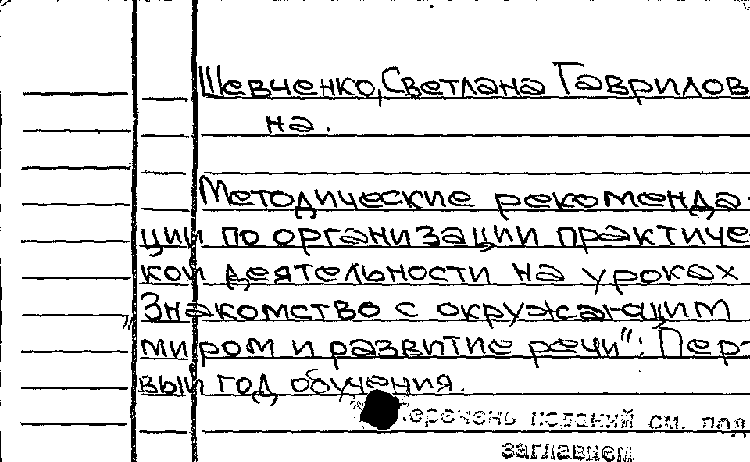 Шевченко, Светлана Гаврилов
на.
Методические рекоменда-
ции по организации практичес
кой деятельности на уроках
"Знакомство с окружающим
миром и развитие речи": Пер-
вый год обучения.
Перечень изданий см. под
заглавием